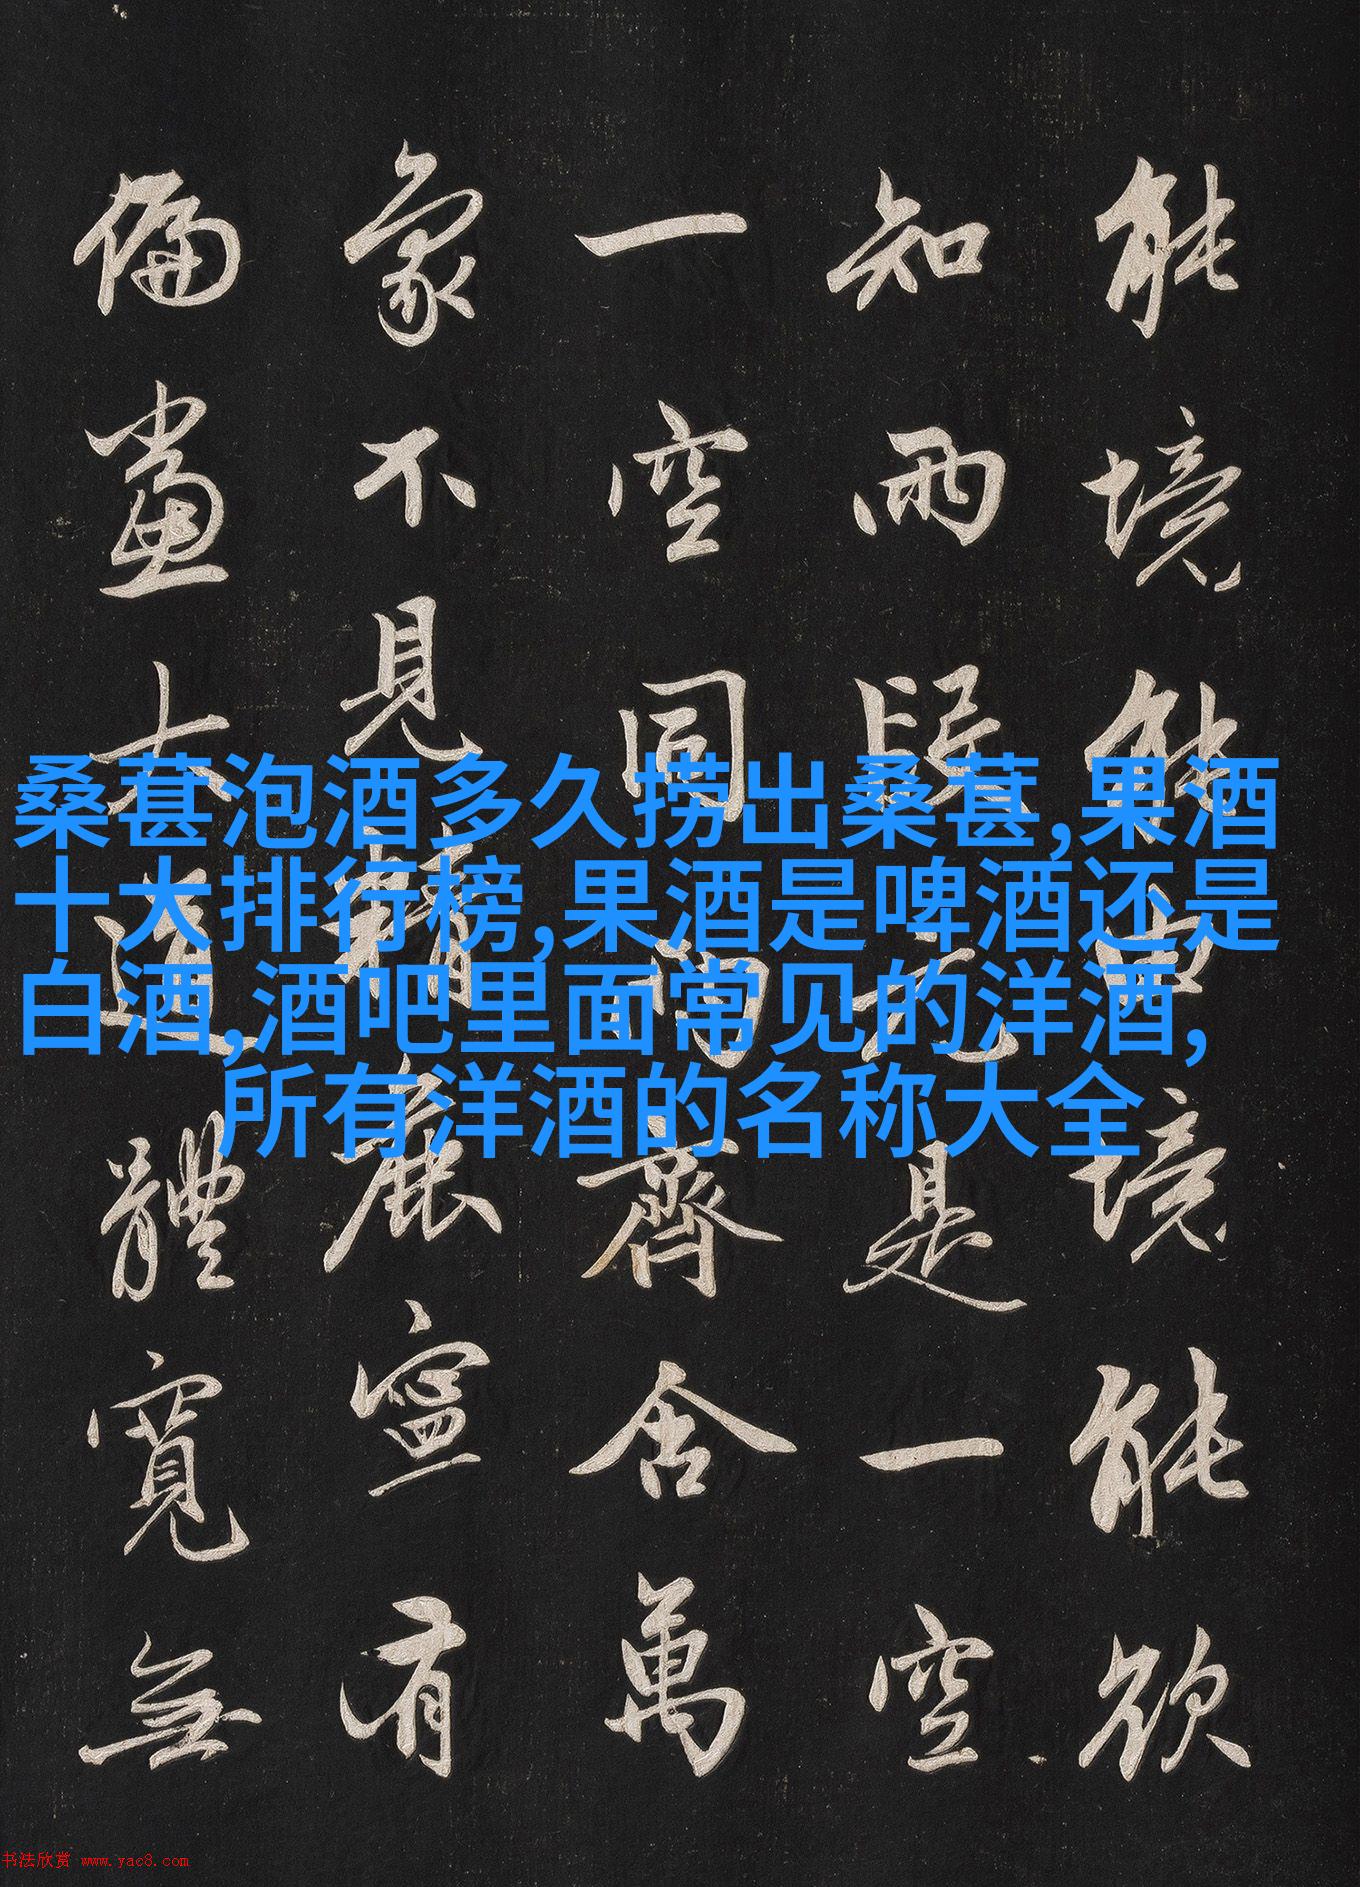 能境能由境能欲
知兩段元是一空
一空同兩齊含萬
象不見精麁寧有
偏黨大道體寬無
桑葚泡酒多久捞出桑葚,果酒
十大排行榜,果酒是啤酒还是
白酒,酒吧里面常见的洋酒,
所有洋酒的名称大全
书法欣赏 www.yac8.com